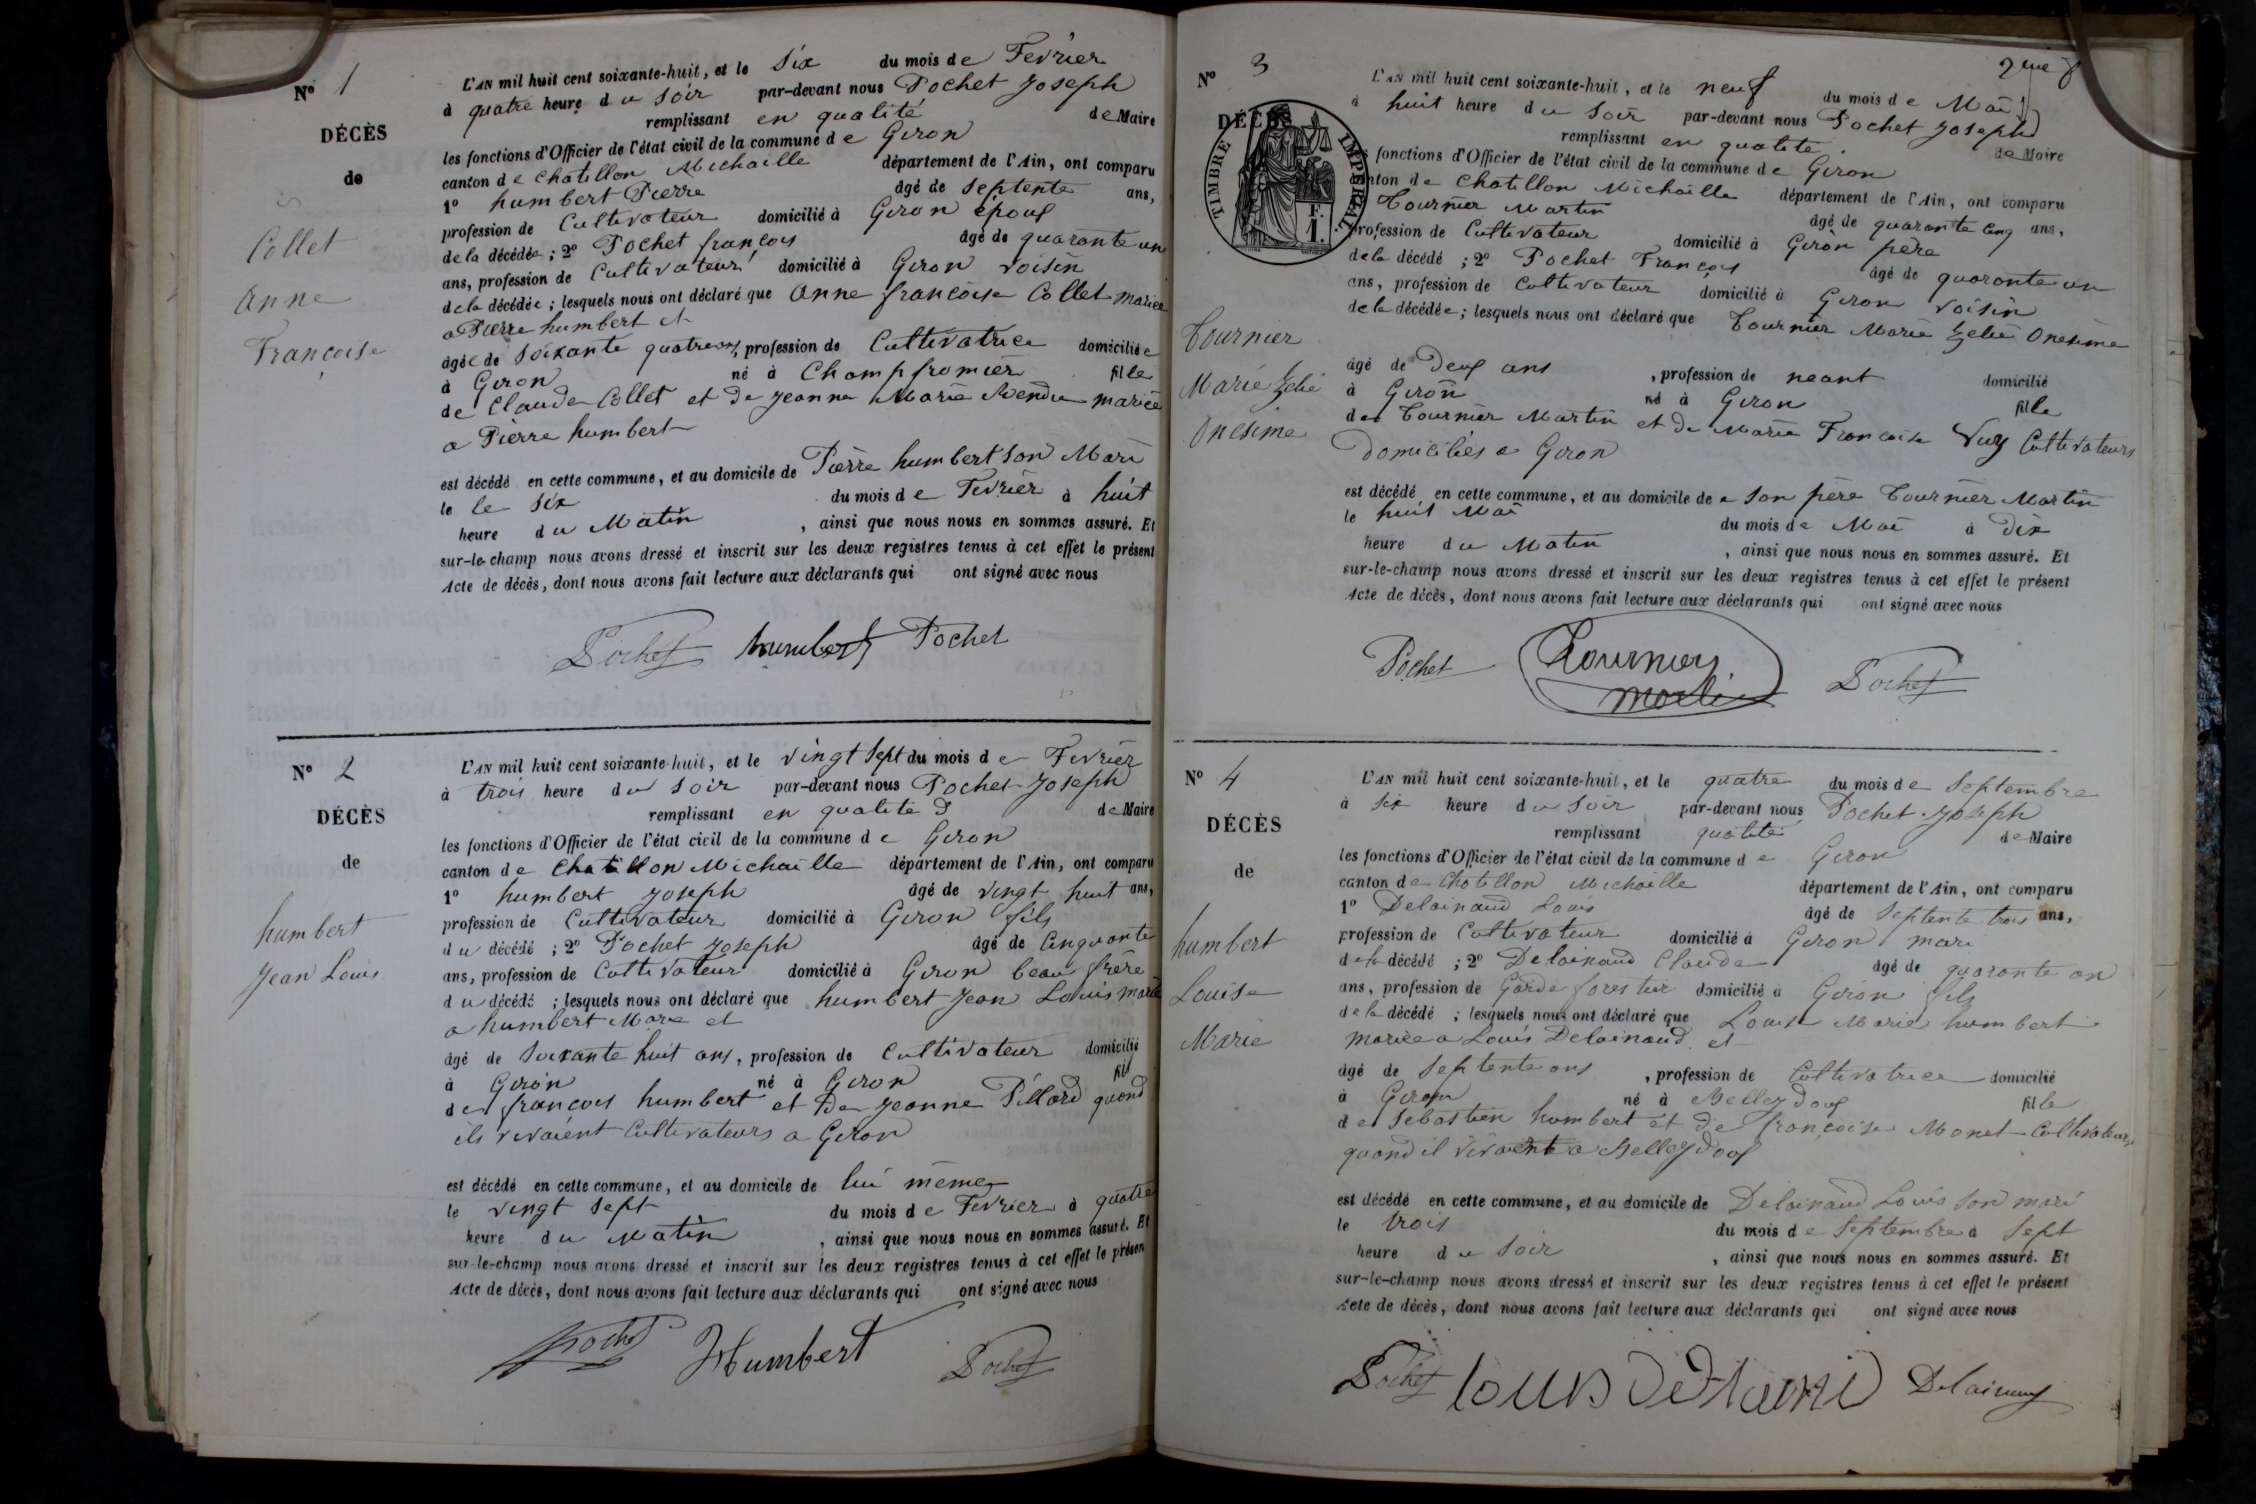 Nº 1
DÉCÈS
de
Collet
Anne
Françoise
L'AN mil huit cent soixante-huit, et le six du mois de Fevrier
à quatre heure du soir par-devant nous Pochet Joseph
remplissant en qualité de Maire
les fonctions d'Officier de l'état civil de la commune de Giron
canton de Chatillon Michaille département de l'Ain, ont comparu
1º humbert Pierre âgé de septente ans,
profession de Cultivateur domicilié à Giron époux
de la décédée ; 2º Pochet françois âgé de quarante un
ans, profession de Cultivateur domicilié à Giron voisin
de la décédée ; lesquels nous ont déclaré que Anne françoise Collet mariée
a Pierre humbert et
âgée de soixante quatre ans, profession de Cultivatrice domiciliée
à Giron né à Champfromier fille
de Claude Collet et de Jeanne Marie mariée
a Pierre humbert
est décédé en cette commune, et au domicile de Pierre humbert son Mari
le le six du mois de Fevrier à huit
heure du Matin , ainsi que nous nous en sommes assuré. Et
sur-le-champ nous avons dressé et inscrit sur les deux registres tenus à cet effet le présent
Acte de décès, dont nous avons fait lecture aux déclarants qui ont signé avec nous
Pochet humbert Pochet
Nº 2
DÉCÈS
de
humbert
Jean Louis
L'AN mil huit cent soixante-huit, et le vingt sept du mois de Fevrier
à trois heure du soir par-devant nous Pochet Joseph
remplissant en qualité d de Maire
les fonctions d'Officier de l'état civil de la commune de Giron
canton de Chatillon Michaille département de l'Ain, ont comparu
1º humbert Joseph âgé de vingt huit ans,
profession de Cultivateur domicilié à Giron fils
du décédé ; 2º Pochet Joseph âgé de Cinquante
ans, profession de Cultivateur domicilié à Giron beau frère
du décédé ; lesquels nous ont déclaré que humbert Jean Louis marié
a humbert Marie et
âgé de soixante huit ans, profession de Cultivateur domicilié
à Giron né à Giron fils
de françois humbert et De Jeanne Pillard quand
ils vivaient Cultivateurs a Giron
est décédé en cette commune, et au domicile de lui même
le vingt sept du mois de Fevrier à quatre
heure du Matin , ainsi que nous nous en sommes assuré. Et
sur-le-champ nous avons dressé et inscrit sur les deux registres tenus à cet effet le présen
Acte de décès, dont nous avons fait lecture aux déclarants qui ont signé avec nous
Pochet JHumbert Pochet
2me f
Nº 3
DÉCÈS
TIMBRE IMPÉRIAL
F.
1.
Tournier
Marie Zelie
Onesime
L'AN mil huit cent soixante-huit, et le neuf du mois de Mai
à huit heure du soir par-devant nous Pochet Joseph
remplissant en qualité de Maire
fonctions d'Officier de l'état civil de la commune de Giron
nton de Chatillon Michaille département de l'Ain, ont comparu
Tournier Martin âgé de quarante cinq ans,
profession de Cultivateur domicilié à Giron père
de la décédé ; 2º Pochet François âgé de quarante un
ans, profession de Cultivateur domicilié à Giron voisin
de la décédée ; lesquels nous ont déclaré que Tournier Marie Zelie Onesime
âgé de Deux ans , profession de neant domicilié
à Giron né à Giron fille
de Tournier Martin et de Marie Françoise Vuy Cultivateurs
Domiciliés a Giron
est décédé en cette commune, et au domicile de a son père Tournier Martin
le huit Mai du mois de Mai à dix
heure du Matin , ainsi que nous nous en sommes assuré. Et
sur-le-champ nous avons dressé et inscrit sur les deux registres tenus à cet effet le présent
Acte de décès, dont nous avons fait lecture aux déclarants qui ont signé avec nous
Pochet Tournier Martin Pochet
Nº 4
DÉCÈS
de
humbert
Louise
Marie
L'AN mil huit cent soixante-huit, et le quatre du mois de Septembre
à six heure du soir par-devant nous Pochet Joseph
remplissant qualité de Maire
les fonctions d'Officier de l'état civil de la commune de Giron
canton de Chatillon Michaille département de l'Ain, ont comparu
1º Delainaud Louis âgé de septente trois ans,
profession de Cultivateur domicilié à Giron mari
de la décédé ; 2º Delainaud Claude âgé de quarante an
ans, profession de Garde forestier domicilié à Giron fils
de la décédé ; lesquels nous ont déclaré que Louise Marie humbert
mariée a Louis Delainaud et
âgé de septente ans , profession de Cultivatrice domicilié
à Giron né à Belleydoux fille
de Sebastien humbert et de françoise Monet Cultivateurs
quand il vivaent a Belleydoux
est décédé en cette commune, et au domicile de Delainaud Louis son mari
le trois du mois de Septembre à sept
heure du soir , ainsi que nous nous en sommes assuré. Et
sur-le-champ nous avons dressé et inscrit sur les deux registres tenus à cet effet le présent
Acte de décès, dont nous avons fait lecture aux déclarants qui ont signé avec nous
Pochet louis Delainaud